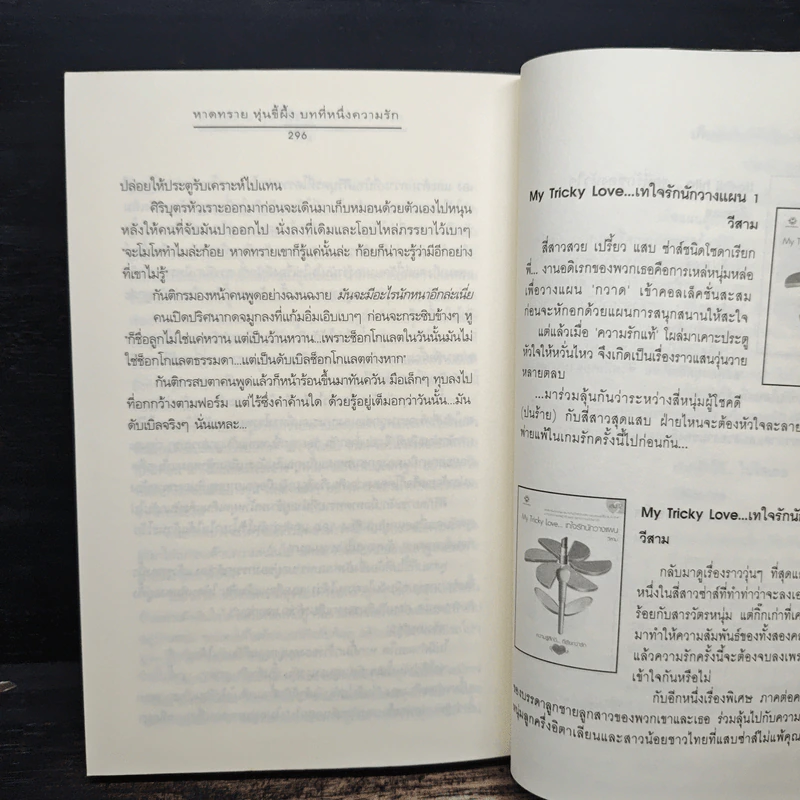 หาดทราย หุ่นขี้ผึ้ง บทที่หนึ่งความรัก
296
ปล่อยให้ประตูรับเคราะห์ไปแทน
ศิริบุตรหัวเราะออกมาก่อนจะเดินมาเก็บหมอนด้วยตัวเองไปหนุน
หลังให้คนที่จับมันปาออกไป นั่งลงที่เดิมและโอบไหล่ภรรยาไว้เบาๆ
"จะโมโหทำไมล่ะก้อย หาดทรายเขาก็รู้แค่นั้นล่ะ ก้อยก็น่าจะรู้ว่ามีอีกอย่าง
ที่เขาไม่รู้"
กันติกรมองหน้าคนพูดอย่างฉงนฉงาย มันจะมีอะไรนักหนาอีกล่ะเนี่ย
คนเปิดปริศนากดจมูกลงที่แก้มอิ่มเอิบเบาๆ ก่อนจะกระซิบข้างๆ หู
"ก็ชื่อลูกไม่ใช่แค่หวาน แต่เป็นว้านหวาน...เพราะช็อกโกแลตในวันนั้นมันไม่
ใช่ช็อกโกแลตธรรมดา...แต่เป็นดับเบิลช็อกโกแลตต่างหาก"
กันติกรสบตาคนพูดแล้วก็หน้าร้อนขึ้นมาทันควัน มือเล็กๆ ทุบลงไป
ที่อกกว้างตามฟอร์ม แต่ไร้ซึ่งคำค้านใด ด้วยรู้อยู่เต็มอกว่าวันนั้น...มัน
ดับเบิลจริงๆ นั่นแหละ...
My Tricky Love...เทใจรักนักวางแผน 1
วีสาม
สี่สาวสวย เปรี้ยว แสบ ซ่าส์ชนิดโซดาเรียก
พี่... งานอดิเรกของพวกเธอคือการเหล่หนุ่มหล่อ
เพื่อวางแผน 'กวาด' เข้าคอลเล็คชั่นสะสม
ก่อนจะหักอกด้วยแผนการสนุกสนานให้สะใจ
แต่แล้วเมื่อ 'ความรักแท้' โผล่มาเคาะประตู
หัวใจให้หวั่นไหว จึงเกิดเป็นเรื่องราวแสนวุ่นวาย
หลายตลบ
...มาร่วมลุ้นกันว่าระหว่างสี่หนุ่มผู้โชคดี
(ปนร้าย) กับสี่สาวสุดแสบ ฝ่ายไหนจะต้องหัวใจละลาย
พ่ายแพ้ในเกมรักครั้งนี้ไปก่อนกัน...
My Tricky Love... เทใจรักนักวางแผน
My Tricky Love...เทใจรักนั
วีสาม
กลับมาดูเรื่องราววุ่นๆ ที่สุดแ
หนึ่งในสี่สาวซ่าส์ที่ทำท่าว่าจะลงเอ
ร้อยกับสารวัตรหนุ่ม แต่กิ๊กเก่าที่เค
มาทำให้ความสัมพันธ์ของทั้งสองค
แล้วความรักครั้งนี้จะต้องจบลงเพร
เข้าใจกันหรือไม่
กับอีกหนึ่งเรื่องพิเศษ ภาคต่อค
องบรรดาลูกชายลูกสาวของพวกเขาและเธอ ร่วมลุ้นไปกับความ
หนุ่มลูกครึ่งอิตาเลียนและสาวน้อยชาวไทยที่แสบซ่าส์ไม่แพ้คุณ